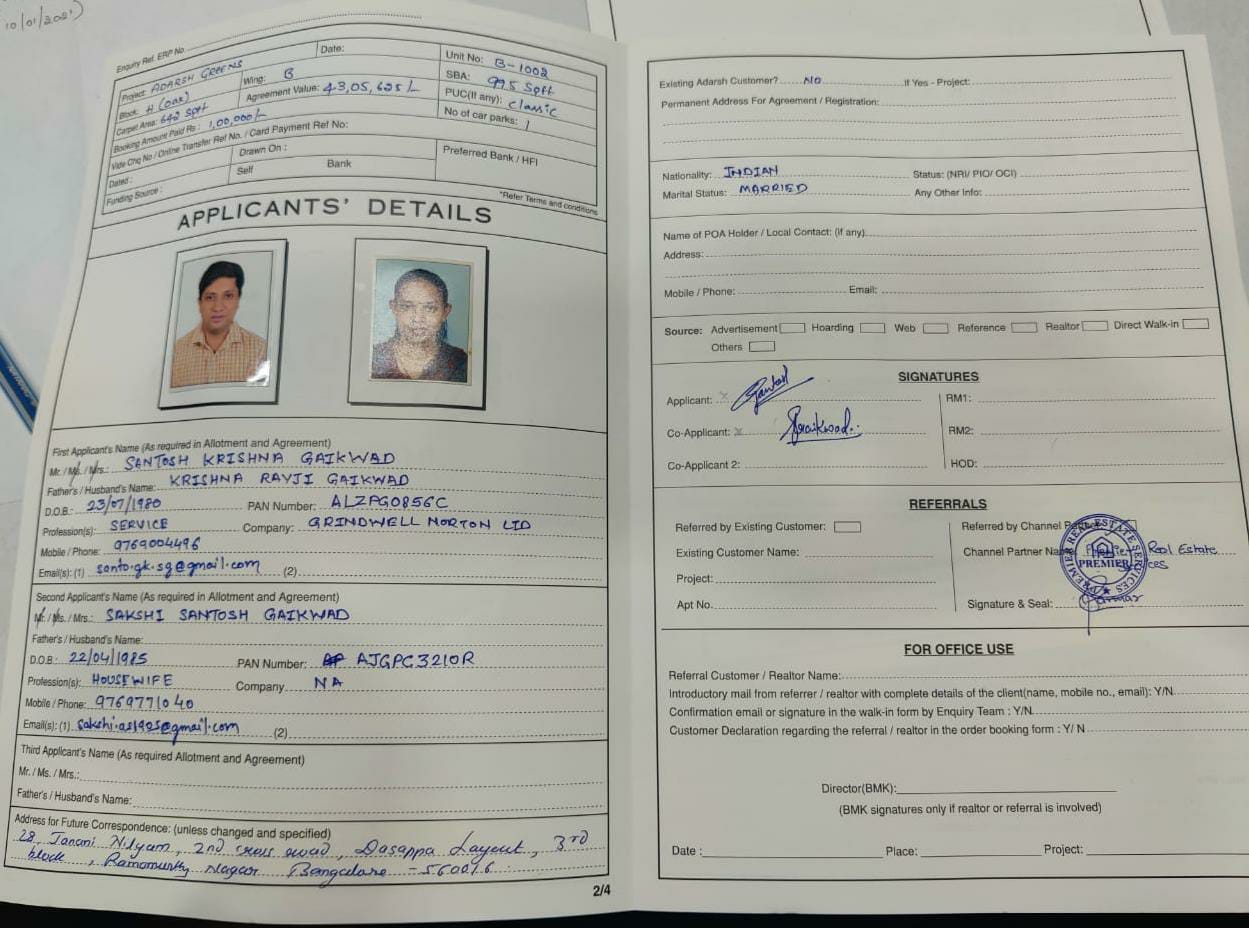 10/01/2021)
Enquiry Ref. ERP No.
Project: ADARSH GREENS Date: Unit No: B-1002
Block: H (oak) Wing: B SBA: 995 Sqft
Carpet Area: 642 Sqft Agreement Value: 43,05,625/- PUC(If any): Classic
Booking Amount Paid Rs : 1,00,000/- No of car parks: 1
Vide Chq No / Online Transfer Ref No. / Card Payment Ref No:
Dated : Drawn On : Preferred Bank / HFI
Funding Source : Self Bank
*Refer Terms and conditions
APPLICANTS' DETAILS
First Applicant's Name (As required in Allotment and Agreement)
Mr. / Ms. / Mrs.: SANTOSH KRISHNA GAIKWAD
Father's / Husband's Name: KRISHNA RAVJI GAIKWAD
D.O.B.: 23/07/1980 PAN Number: ALZPG0856C
Profession(s): SERVICE Company: GRINDWELL NORTON LTD
Mobile / Phone: 9769004496
Email(s): (1) santo.gk.sg@gmail.com (2)
Second Applicant's Name (As required in Allotment and Agreement)
Mr. / Ms. / Mrs.: SAKSHI SANTOSH GAIKWAD
Father's / Husband's Name:
D.O.B.: 22/04/1985 PAN Number: AJGPC3210R
Profession(s): HOUSEWIFE Company NA
Mobile / Phone: 9769771040
Email(s): (1) (2)
Third Applicant's Name (As required Allotment and Agreement)
Mr. / Ms. / Mrs.:
Father's / Husband's Name:
Address for Future Correspondence: (unless changed and specified)
28, Janani Nilyam, 2nd cross road, Dasappa Layout, 3rd
block, Ramamurthy Nagar Bangalore - 560016.
2/4
Existing Adarsh Customer? NO If Yes - Project:
Permanent Address For Agreement / Registration:
Nationality: INDIAN Status: (NRI/ PIO/ OCI)
Marital Status: MARRIED Any Other Info:
Name of POA Holder / Local Contact: (if any)
Address:
Mobile / Phone: Email:
Source: Advertisement Hoarding Web Reference Realtor Direct Walk-in
Others
SIGNATURES
Applicant: x Santosh RM1:
Co-Applicant: x Sgaikwad. RM2:
Co-Applicant 2: HOD:
REFERRALS
Referred by Existing Customer: Referred by Channel
Existing Customer Name: Channel Partner Premier Real Estate
Project: Services
Apt No. Signature & Seal:
PREMIER REAL ESTATE SERVICES
PREMIER
FOR OFFICE USE
Referral Customer / Realtor Name:
Introductory mail from referrer / realtor with complete details of the client(name, mobile no., email): Y/N
Confirmation email or signature in the walk-in form by Enquiry Team : Y/N
Customer Declaration regarding the referral / realtor in the order booking form : Y/ N
Director(BMK):
(BMK signatures only if realtor or referral is involved)
Date : Place: Project: